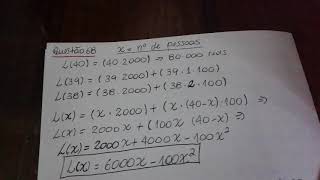 Questão 68 x = nº de pessoas
L(40) = (40 2000) ⇒ 80.000 reais
L(39) = (39 2000) + (39 · 1 · 100)
L(38) = (38 · 2000) + (38 · 2 · 100)
L(x) = (x · 2000) + (x · (40-x) · 100) ⇒
L(x) = 2000x + (100x (40-x) ⇒
L(x) = 2000x + 4000x - 100x²
L(x) = 6000x - 100x²